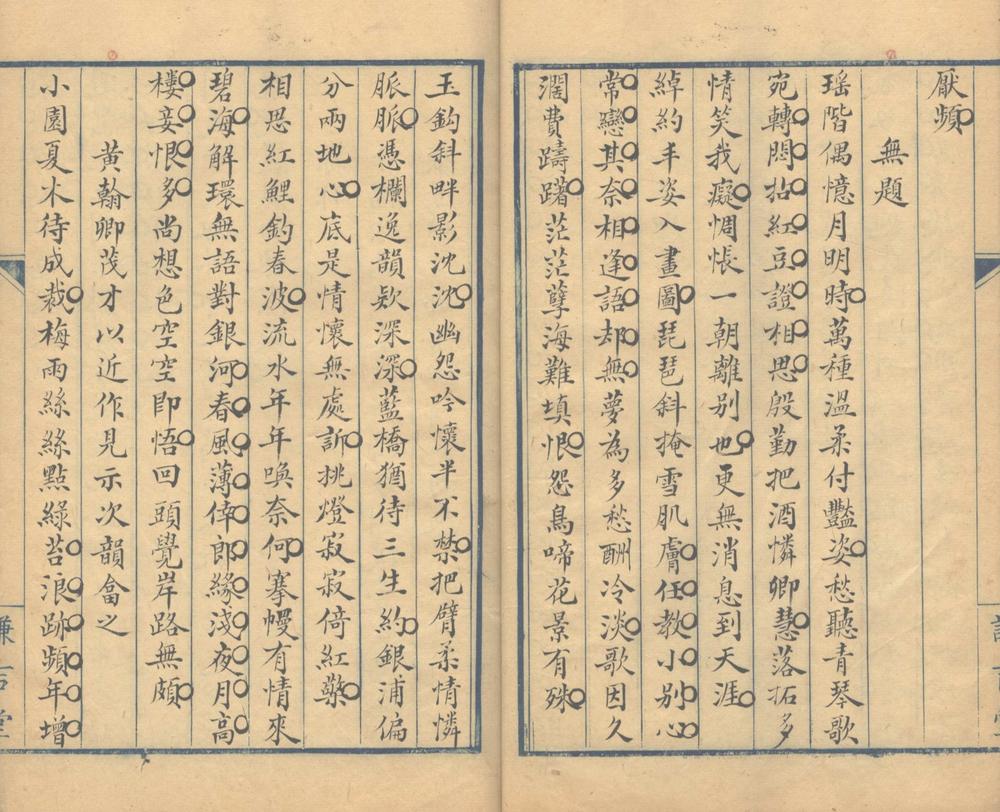 厭頻
無題
瑶階偶憶月明時萬種溫柔付豔姿愁聽青琴歌
宛轉悶拈紅豆證相思殷勤把酒憐卿慧落拓多
情笑我癡惆悵一朝離別也更無消息到天涯
綽約丰姿入畫圖琵琶斜掩雪肌膚任教小別心
常戀其奈相逢語却無夢為多愁酬冷淡歌因久
濶費躊躇茫茫孽海難填恨怨鳥啼花景有殊
玉鈎斜畔影沈沈幽怨吟懷半不禁把臂柔情憐
脈脈憑欄逸韻欵深深藍橋猶待三生約銀浦偏
分兩地心底是情懷無處訴挑燈寂寂倚紅檠
相思紅鯉釣春波流水年年喚奈何搴幔有情來
碧海解環無語對銀河春風薄倖郎緣淺夜月高
樓妾恨多尚想色空空即悟回頭覺岸路無頗
黃翰卿茂才以近作見示次韻畣之
小園夏木待成裁梅雨絲絲點綠苔浪跡頻年增